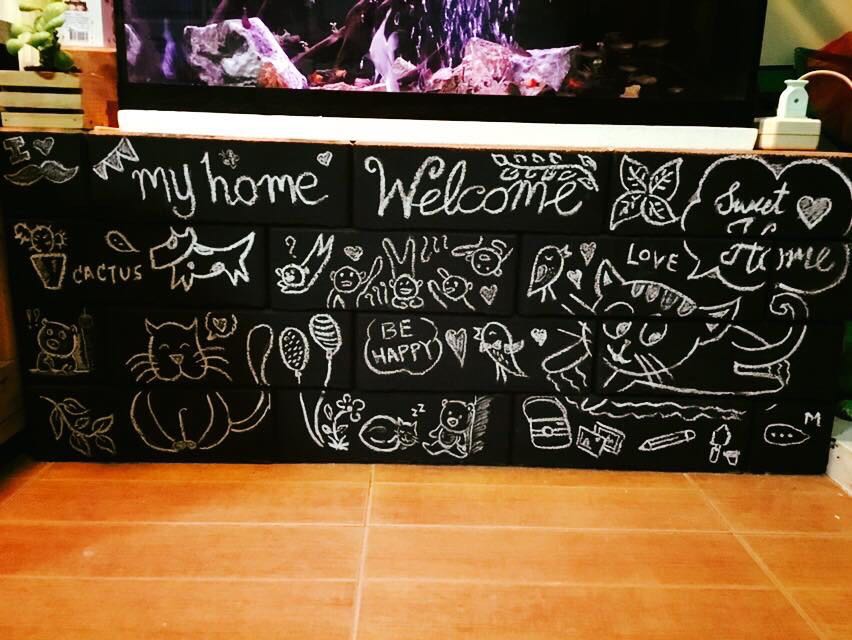 I
my home
Welcome
Sweet
Home
LOVE
CACTUS
?
!?
BE
HAPPY
zz
M